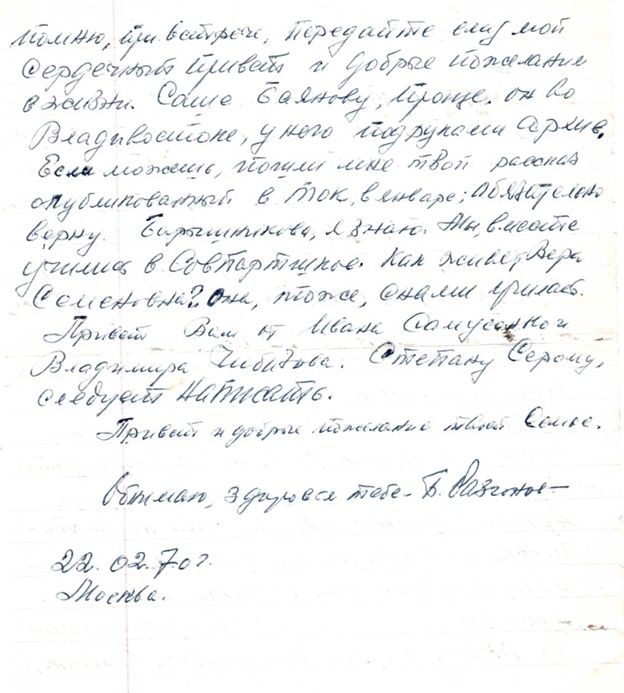 помню, при встрече, передайте ему мой
сердечный привет и добрые пожелания
в жизни. Саше Баянову, проще. он во
Владивостоке, у него под руками Архив.
Если можешь, пошли мне твой рассказ
опубликованный в ТОК, в январе; Обязательно
верну. Барышникова, я знаю. Мы, вместе
учились в Совпартшколе. Как живет Вера
Семеновна? Она, тоже, с нами училась.
Привет Вам от Ивана Самусенко и
Владимира Чибизова. Степану Серому,
следует написать.
Привет и добрые пожелания твоей Семье.
Обнимаю, здоровья тебе – Б.
22.02.70 г.
Москва.